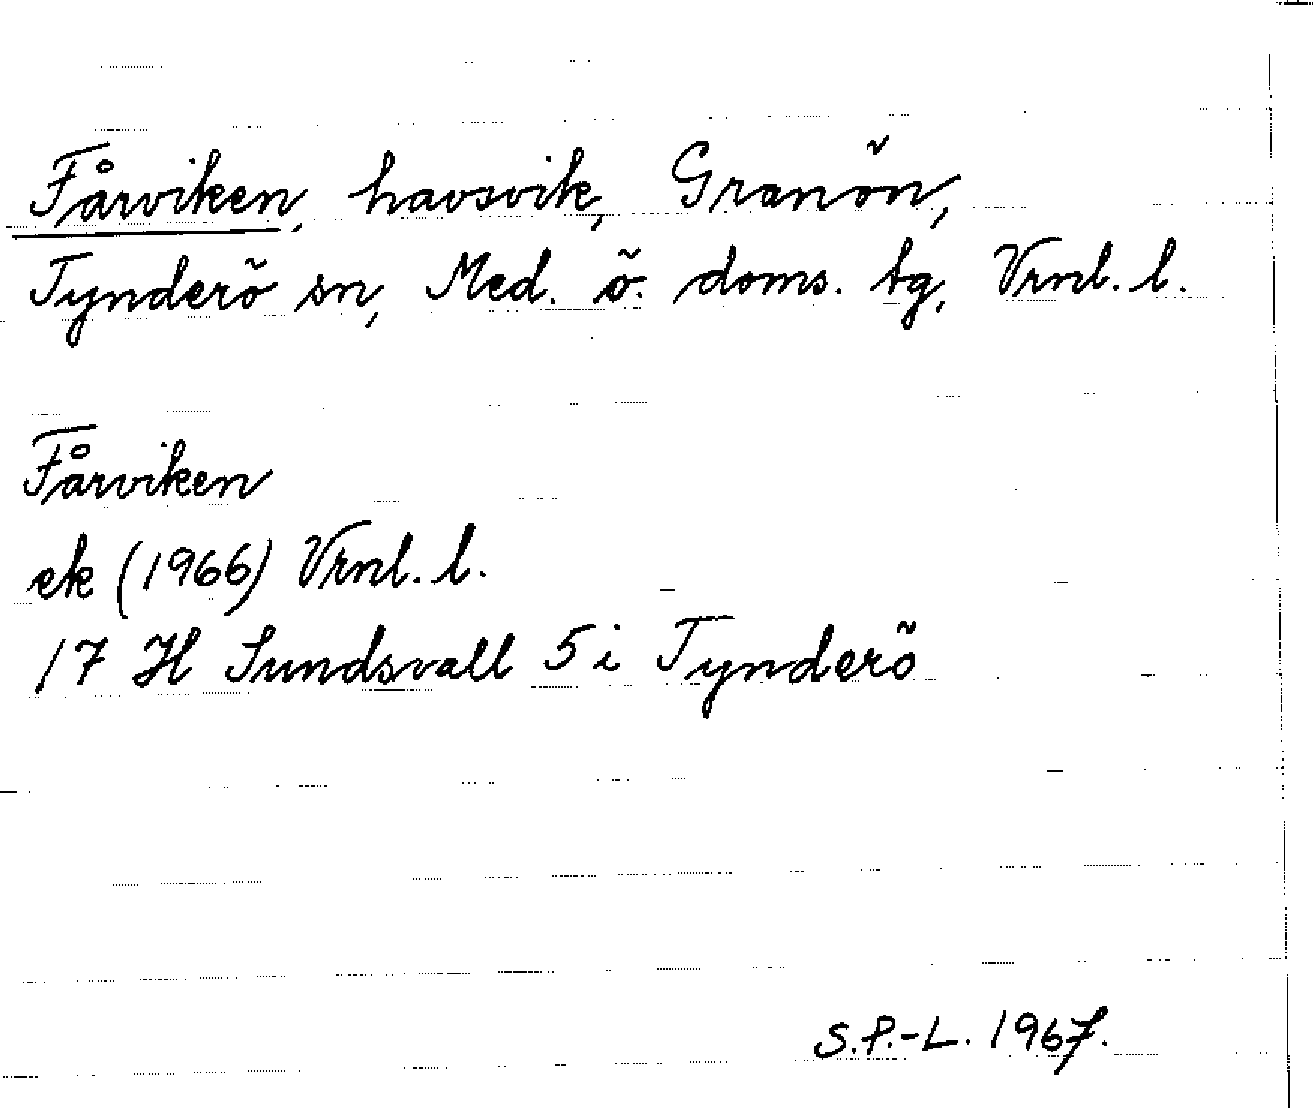 Fårviken, havsvik, Granön,
Tynderö sn, Med. ö. doms. tg, Vrnl. l.
Fårviken
ek (1966) Vrnl. l.
17 H Sundsvall 5 i Tynderö
S.P.-L. 1967.